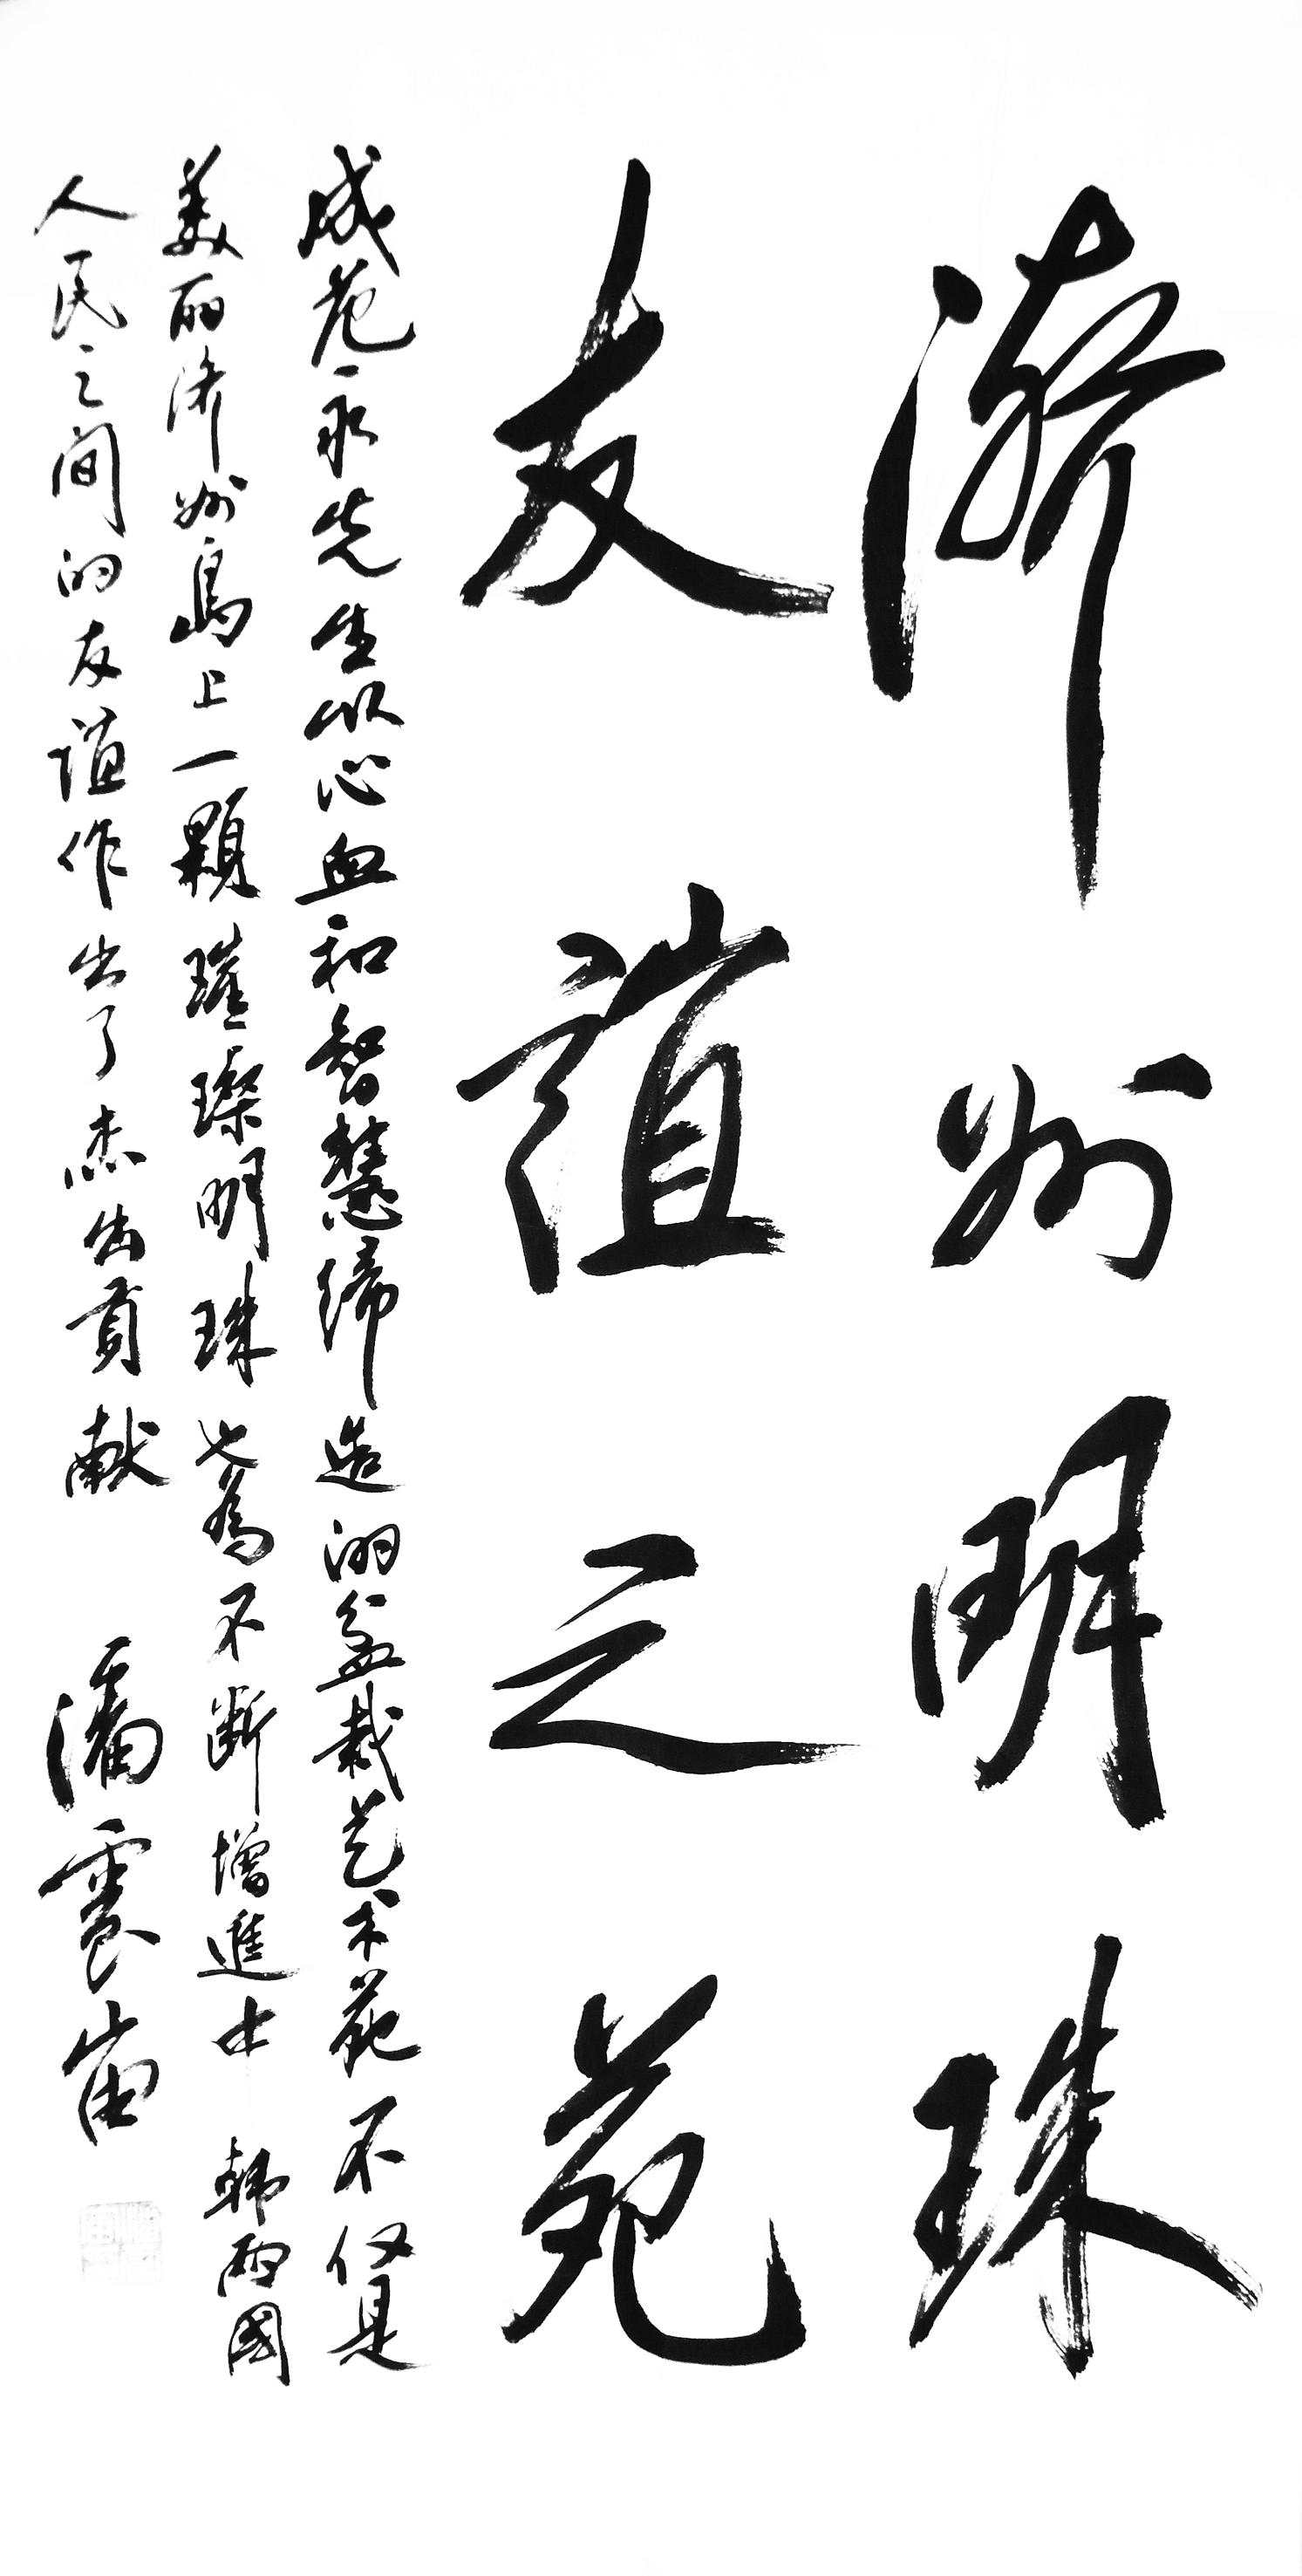 济州明珠
友谊之苑
成范永先生以心血和智慧缔造的盆栽艺术苑不仅是
美丽济州岛上一颗璀璨明珠也為不断增進中韩两國
人民之间的友谊作出了杰出貢献
潘震宙